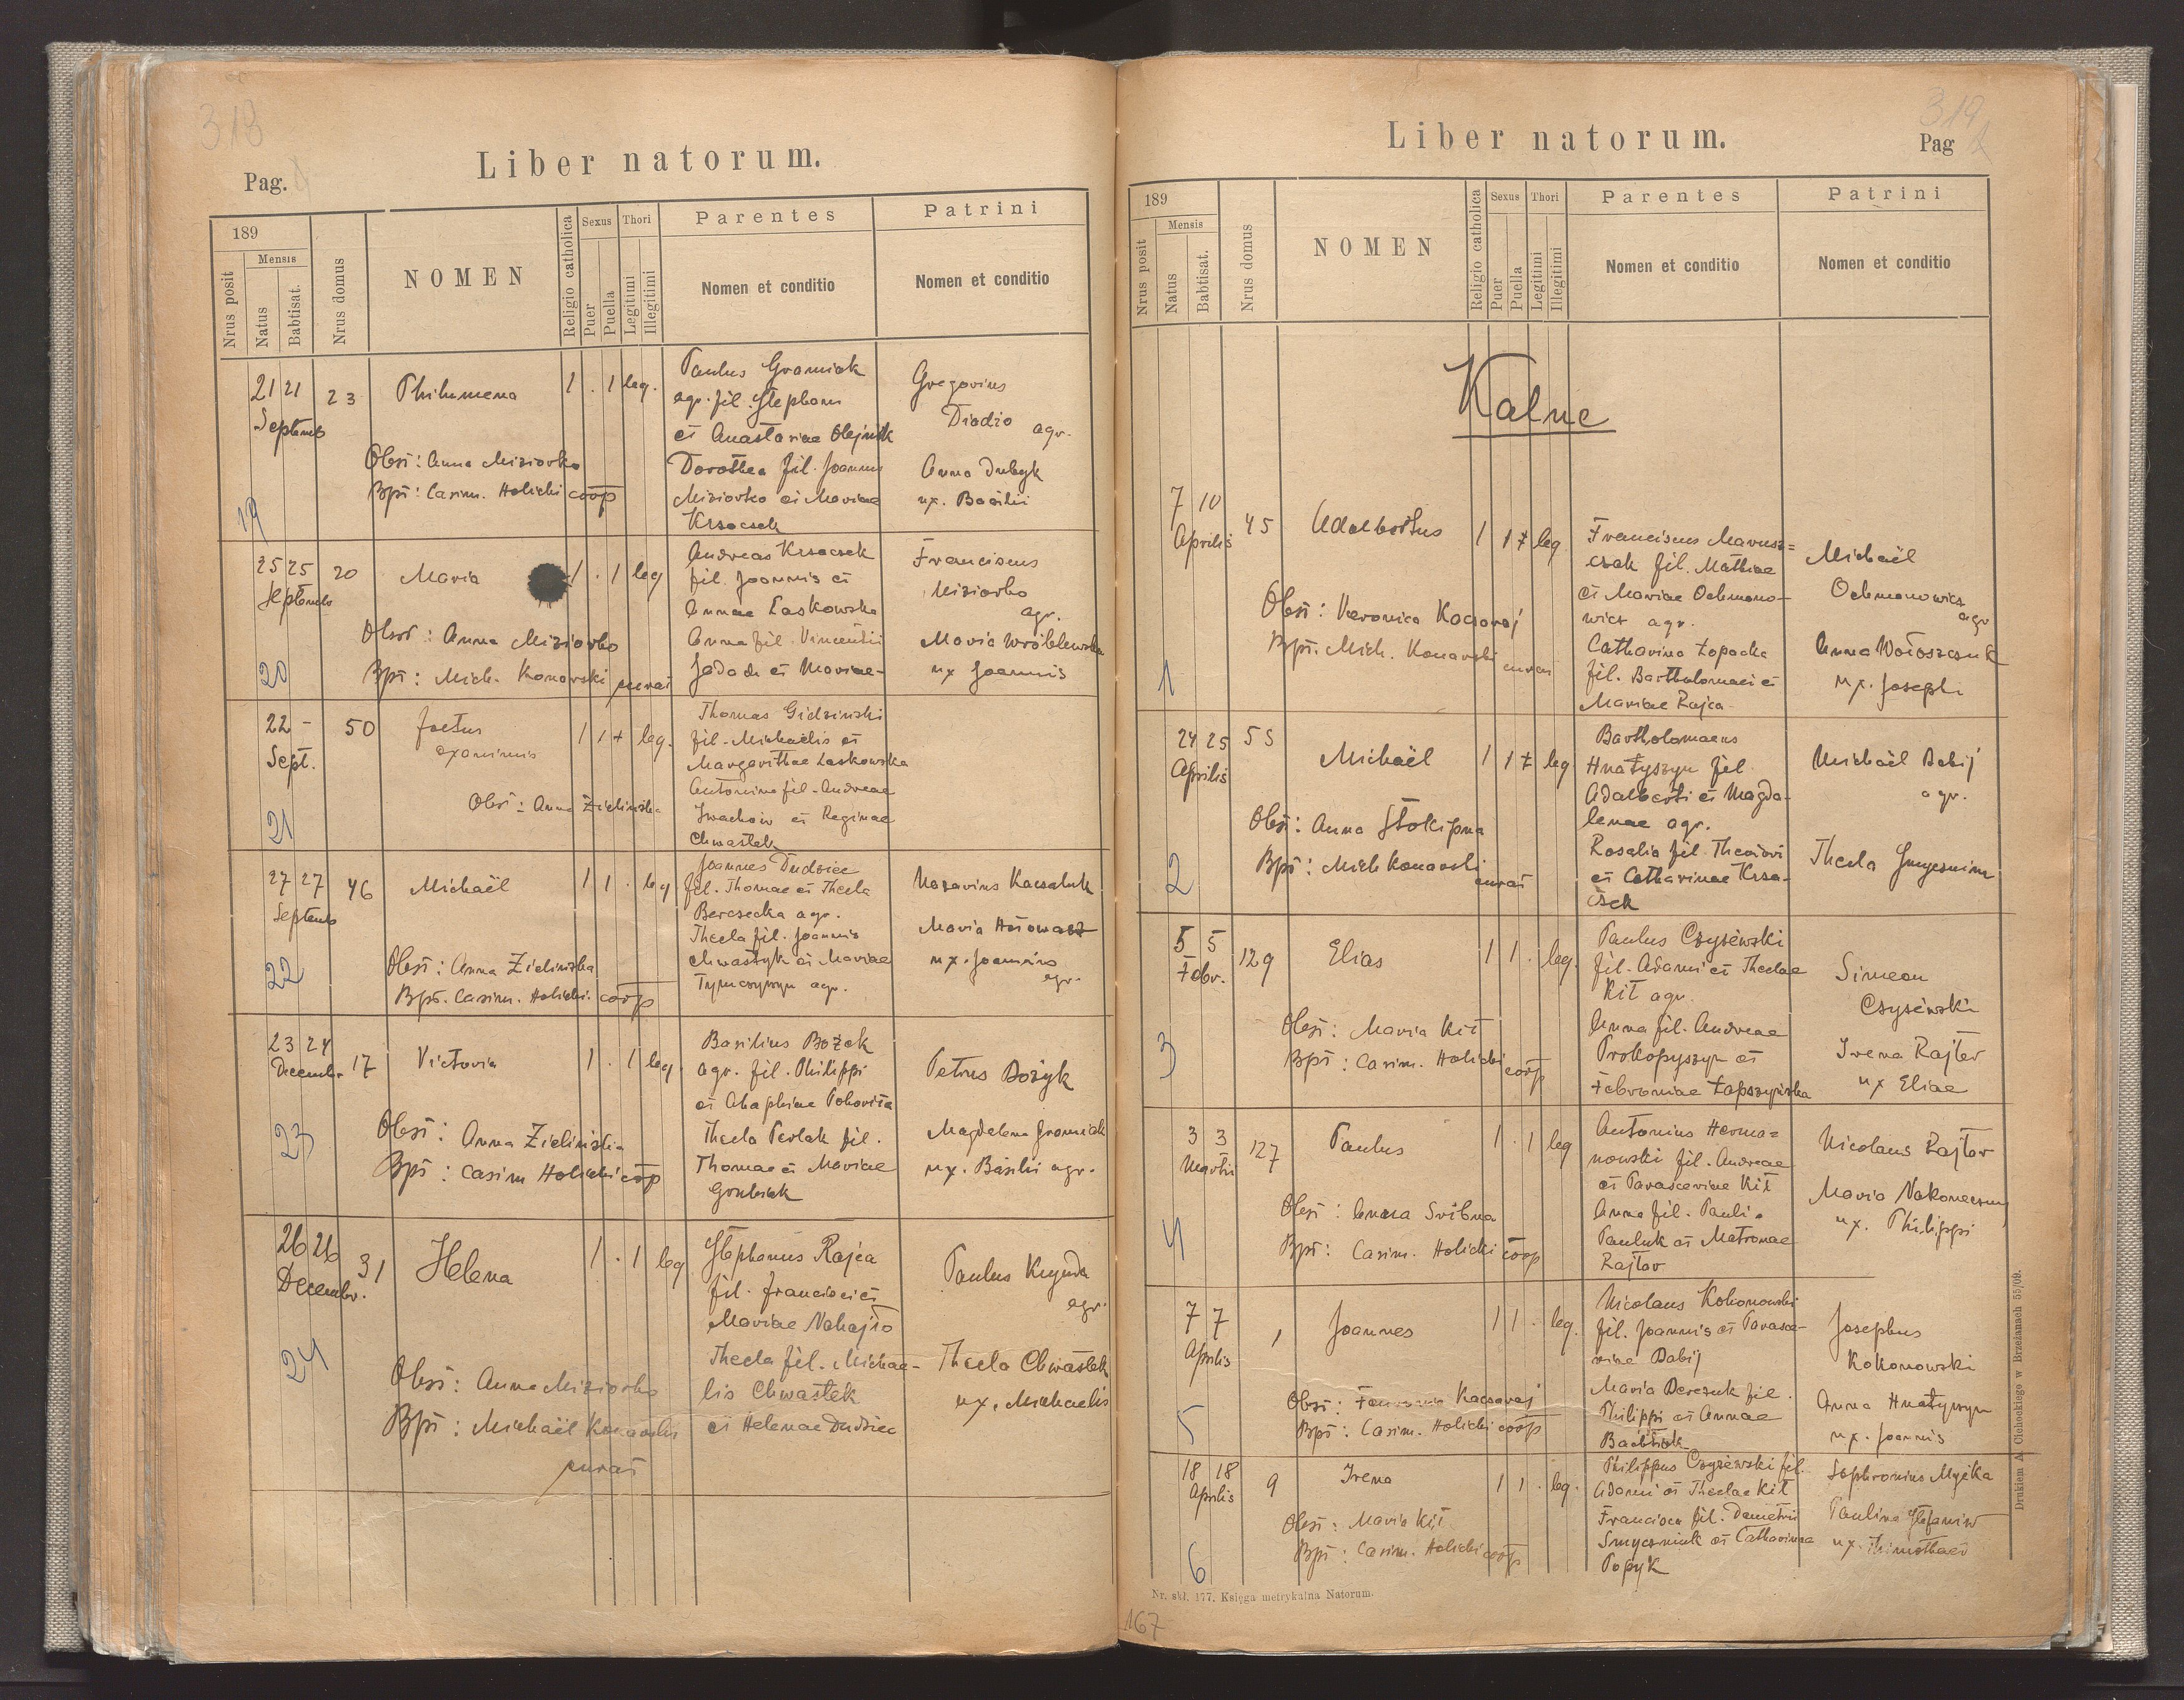 318
Pag.
Liber natorum.
189
Mensis
Nrus posit
Natus
Babtisat.
Nrus domus
NOMEN
Religio catholica
Sexus
Puer
Puella
Thori
Legitimi
Illegitimi
Parentes
Nomen et conditio
Patrini
Nomen et conditio
21 21 23 Philumena 1 . 1 leg.
Septemb
Paulus Gromiak
agr. fil. Stephani
et Anastasiae Olejnik
Dorothea fil. Joannis
Misiorko et Mariae
Krzaczek
Gregorius
Diadio agr.
Anna Dubyk
ux. Basilii
Obst: Anna Misiorko
Bpt: Casim. Holicki coop
19
25 25 20 Maria 1 . 1 leg
Septemb
Andreas Krsacsek
fil. Joannis et
Annae Laskowska
Anna fil. Vincentii
et Mariae
Franciscus
Misiorko
agr.
Maria Wróblewska
ux Joannis
Obst: Anna Misiorko
Bpt: Mich. Konarski curat
20
22 - 50 foetus 1 1 + leg.
Sept. exanimis
Thomas Gidzinski
fil. Michaelis et
Margarithae Laskowska
Antonina fil. Andreae
Iwachow et Reginae
Chwastek
Obst: Anna Zielinska
21
27 27 46 Michaël 1 1 . leg
Septemb
Joannes Dudziec
fil. Thomae et Thecla
Berezecka agr.
Thecla fil. Joannis
Chwastyk et Mariae
Tymczyszyn agr.
Nazarius Kaczaluk
Maria
ux. Joannis
agr.
Obst: Anna Zielinska
Bpt. Casim. Holicki. coop
22
23 24 17 Victoria 1 . 1 leg.
Decembr
Basilius Bozek
agr. fil. Philippi
et Ahaphiae
Thecla Perlak fil.
Thomae et Mariae
Petrus Dożyk
Magdalena Gromiak
ux. Basilii agr.
Obst: Anna Zielinska
Bpt: Casim Holicki coop
23
26 26 31 Helena 1 . 1 leg
Decembr.
Stephanus Rajca
fil. Francisci et
Mariae Nahajło
Thecla fil. Michae-
lis Chwastek
et Helenae Dudziec
Paulus Kryuda
agr.
Thecla Chwastek
ux. Michaelis
Obst: Anna Misiorko
Bpt: Michaël Konarski
curat
24
319
Liber natorum.
Pag
189
Mensis
Nrus posit
Natus
Babtisat.
Nrus domus
NOMEN
Religio catholica
Sexus
Puer
Puella
Thori
Legitimi
Illegitimi
Parentes
Nomen et conditio
Patrini
Nomen et conditio
Kalne
7 10 45 Adalbertus 1 1 + leg
Aprilis
Franciscus Marusz=
czak fil. Mathiae
et Mariae Ochmono-
wicz agr.
Catharina Łopacka
fil. Bartholomaei et
Mariae Rajca
Michaël
Ochmonowicz
agr
Anna Wołoszczuk
ux. Josephi
Obst: Veronica Kaczoraj
Bpt. Mich. Konarski curat
1
24 25 55 Michaël 1 1 + leg
Aprilis
Bartholomaeus
Hnatyszyn fil
Adalberti et Magda-
lenae agr.
Rosalia fil. Theodori
et Catharinae Krza-
czek
Michaël Babij
agr.
Thecla
Obst: Anna Stokipna
Bpt: Mich Konarski
curat
2
5 5 129 Elias 1 1 . leg.
Febr.
Paulus Czyżewski
fil. Adami et Theclae
Kit agr.
Anna fil. Andreae
Prokopyszyn et
Febroniae Łapszyńska
Simeon
Czyżewski
Irena Rajter
ux Eliae
Obst: Maria Kit
Bpt: Casim. Holicki coop
3
3 3 127 Paulus 1 . 1 leg
Martii
Antonius Herma=
nowski fil. Andreae
et Parasceviae Kit
Anna fil. Pauli
Pauluk et Matronae
Rajtar
Nicolaus Rajtar
Maria Nakoneczny
ux. Philippi
Obst: Anna Svibna
Bpt: Casim. Holicki coop
4
7 7 1 Joannes 1 1 . leg.
Aprilis
Nicolaus Kokonowski
fil. Joannis et Parasce-
viae Babij
Maria Derezuk fil.
Philippi et Annae
Josephus
Kokonowski
Anna Hnatyszyn
ux. Joannis
Obst: Kaczoraj
Bpt: Casim. Holicki coop
5
18 18 9 Irena 1 1 . leg.
Aprilis
Philippus Czyżewski fil.
Adami et Theclae Kit
Francisca fil. Demetrii
Smyczniuk et Catharinae
Popyk
Sophronius Myżka
Paulina Stefaniw
ux. Thimothaei
Obst: Maria Kit
Bpt: Casim. Holicki coop
6
Nr. skł. 177. Księga metrykalna Natorum.
Drukiem A. Cichockiego w Brzeżanach 55/09.
167